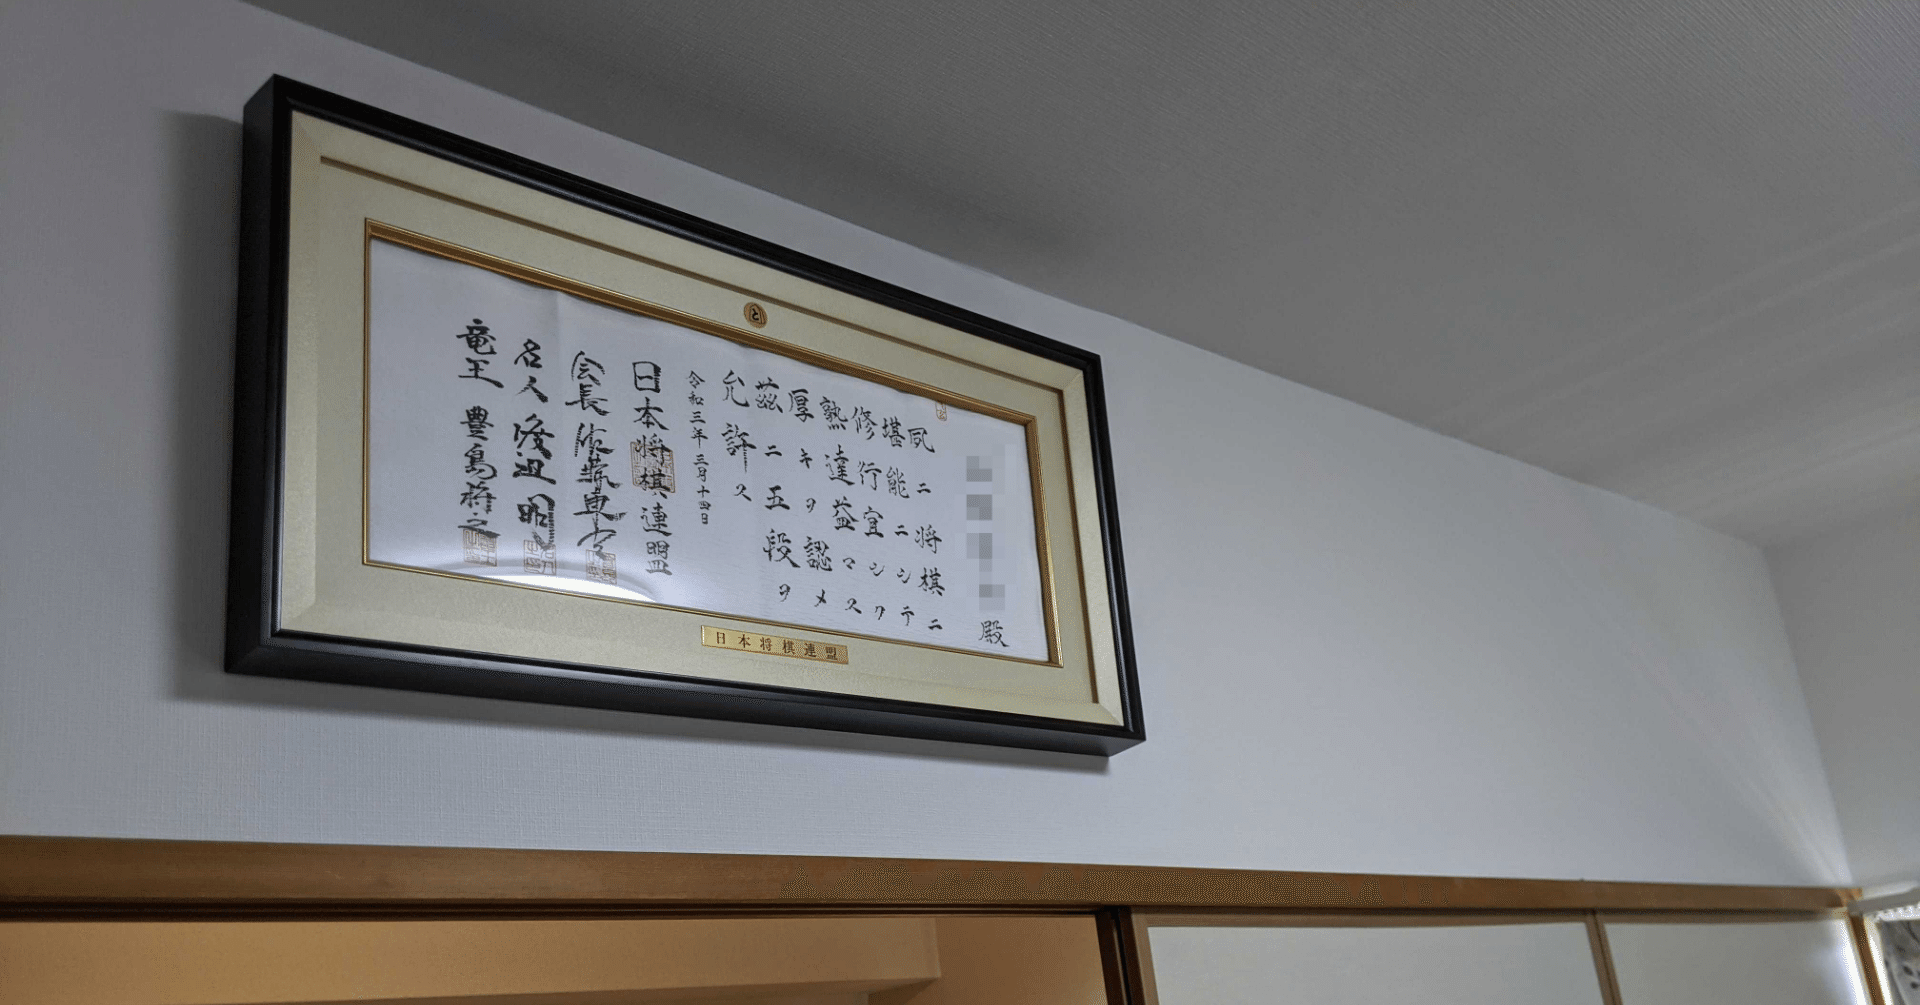 殿
夙ニ将棋ニ
堪能ニシテ
修行宜シク
熟達益マス
厚キヲ認メ
茲ニ五段ヲ
允許ス
令和三年三月十四日
日本将棋連盟
会長 佐藤康光
名人 渡辺明
竜王 豊島将之
日本将棋連盟